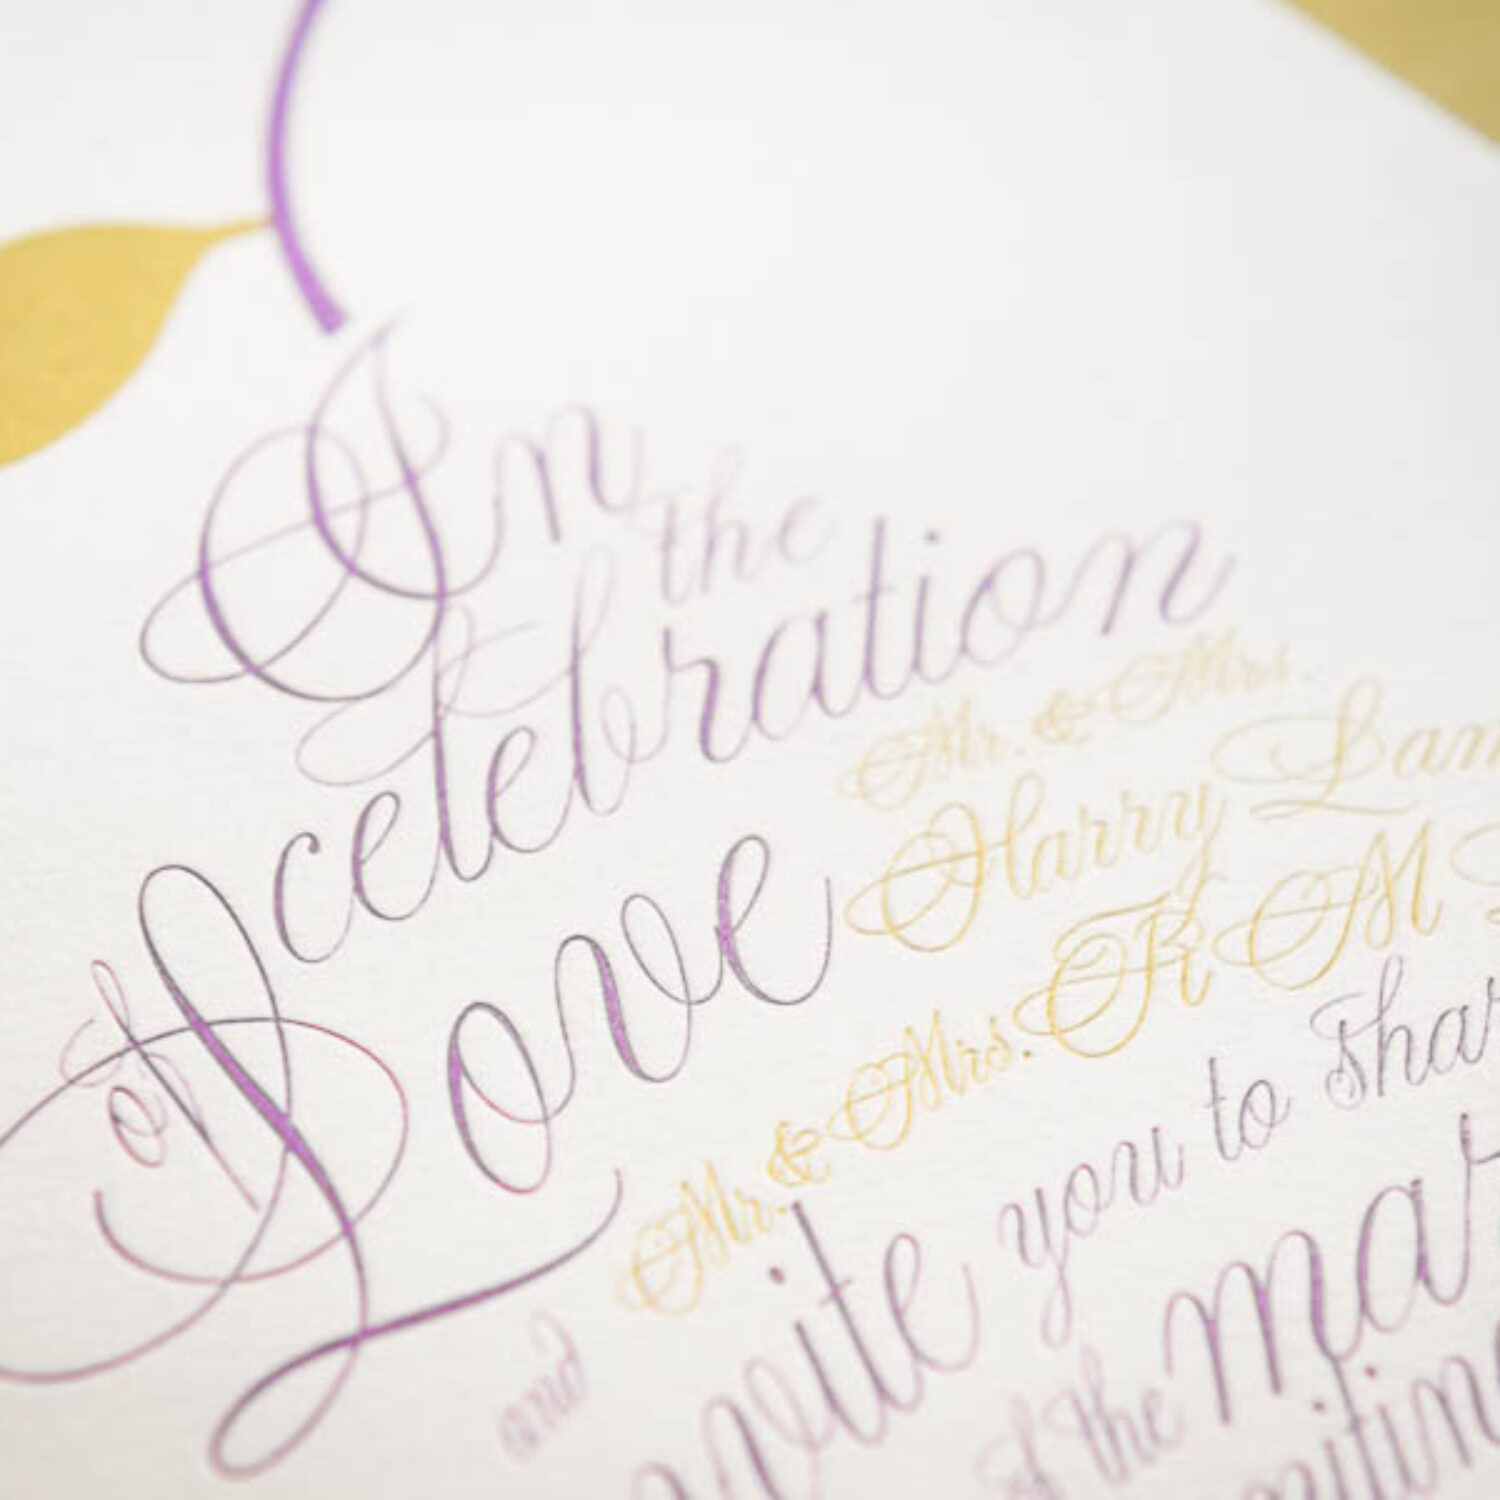 In the
celebration
of Love
Mr. & Mrs.
Harry Lam
Mr. & Mrs. K M
and
vite you to shar
of the mar